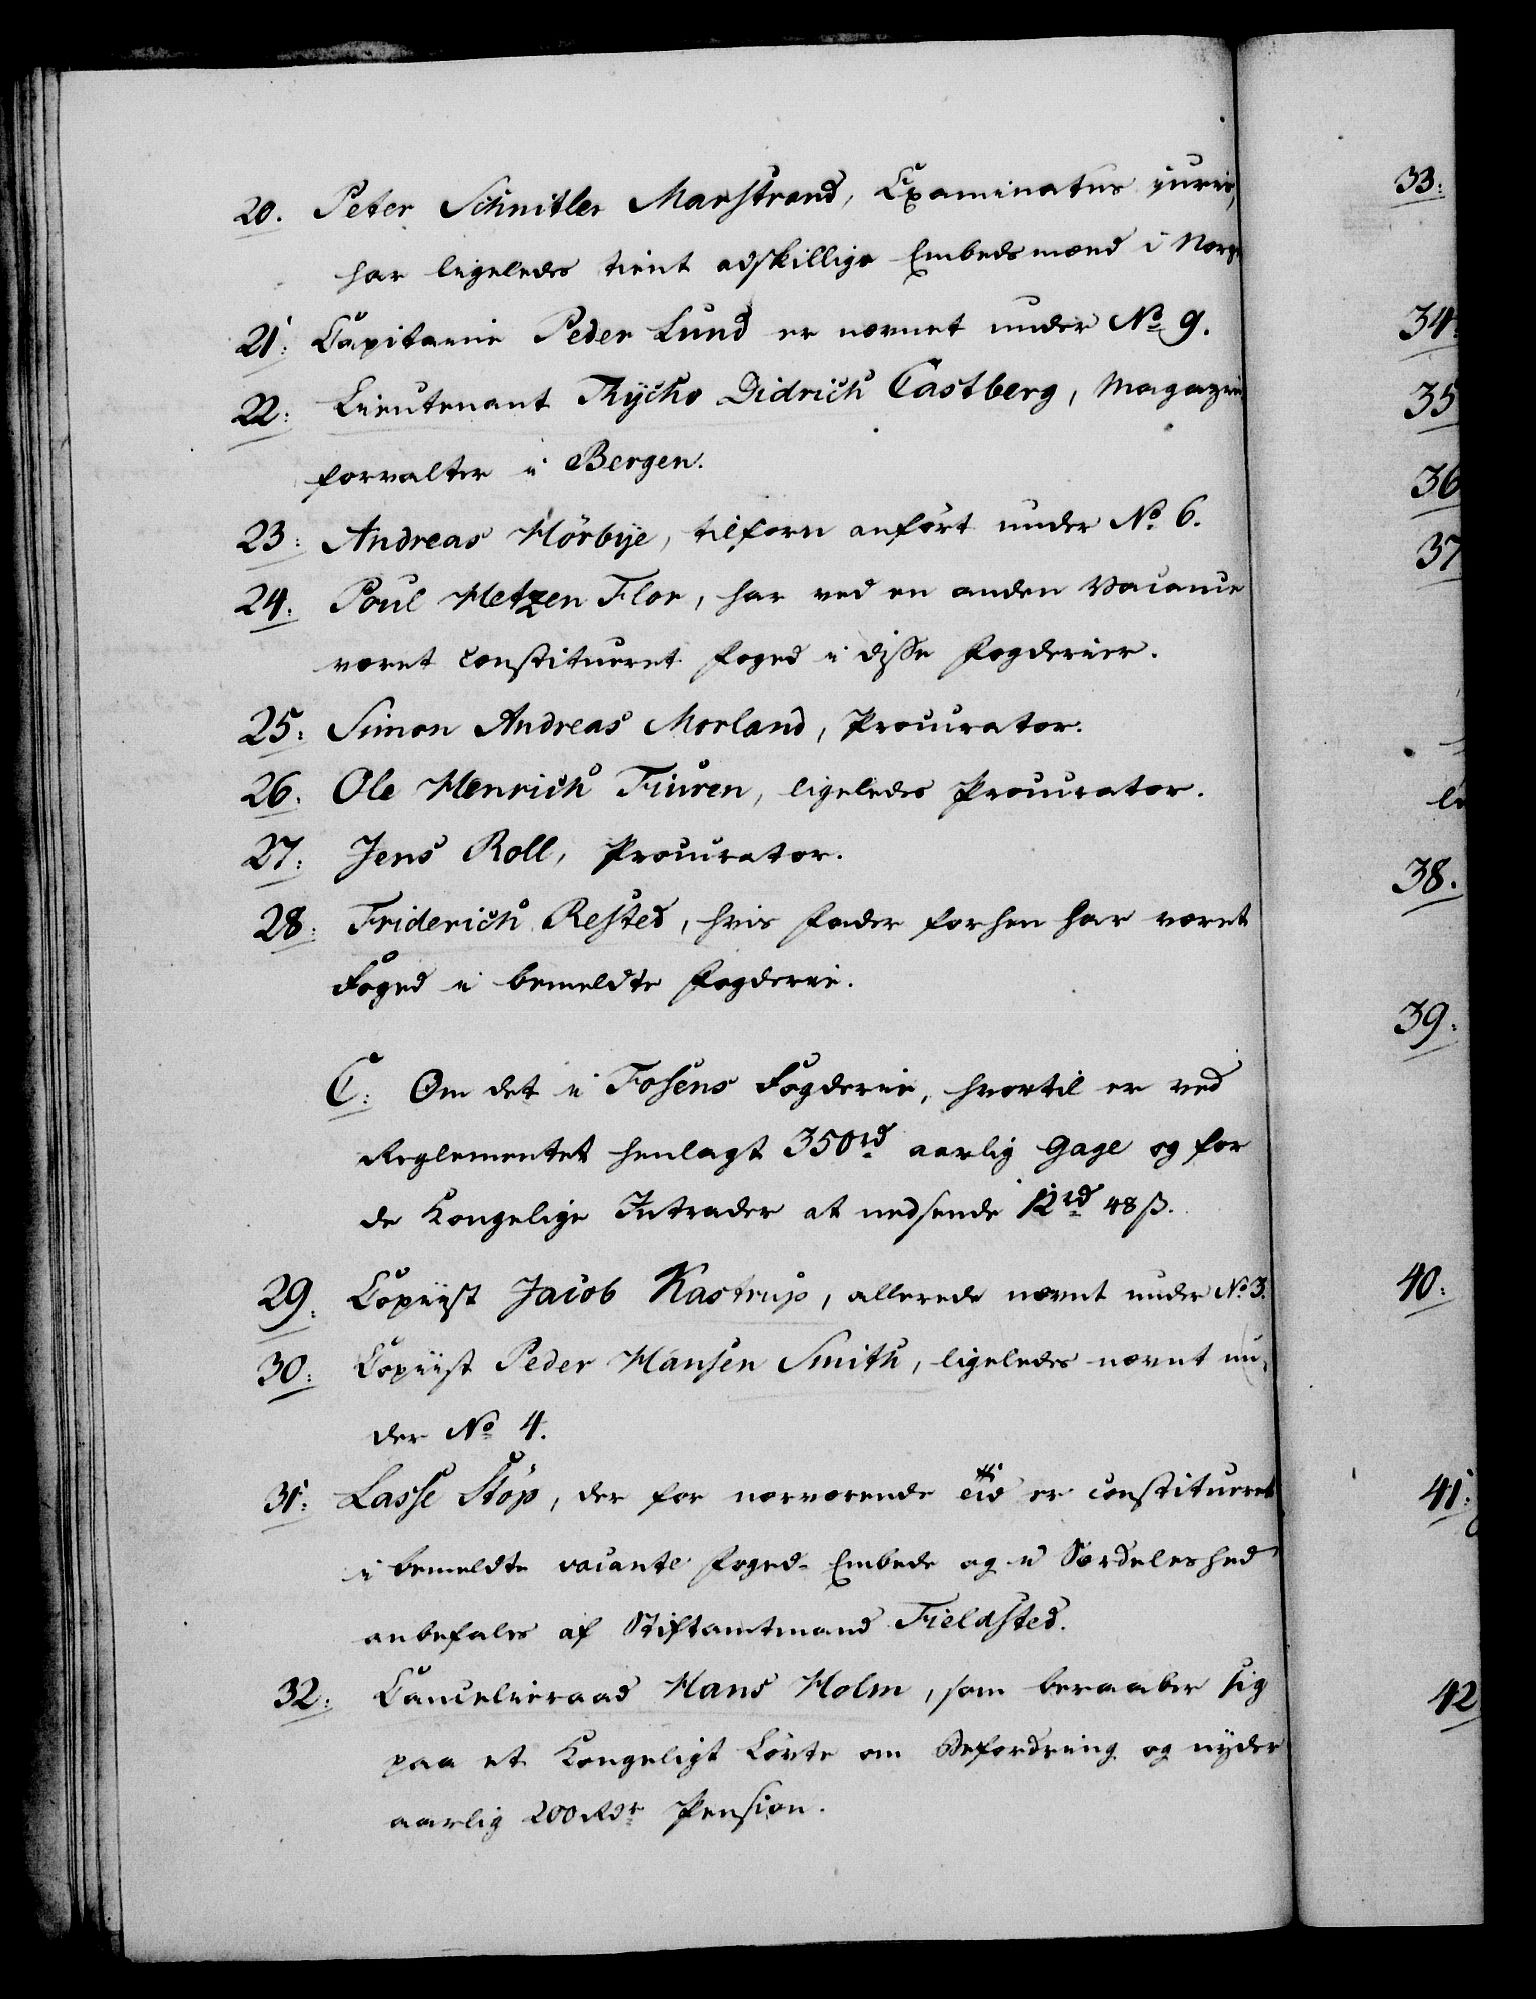 20. Peter Schnitler Marstrand, Examinatus juris,
har ligeledes tient adskillige Embedsmænd i Norge
21. Capitaine Peder Lund er nævnet under No 9.
22. Lieutenant Thycho Didrich Castberg, Magazin
forvalter i Bergen.
23. Andreas Hörbye, tilforn anført under No 6.
24. Poul Hetzen Flor, har ved en anden Vacance
været constitueret Foged i disse Fogderier.
25. Simon Andreas Morland, Procurator.
26. Ole Henrich Fiuren, ligeledes Procurator.
27. Jens Roll, Procurator.
28. Friderich Rested, hvis Fader forhen har været
Foged i bemeldte Fogderie.
C. Om det i Fosens Fogderie, hvortil er ved
Reglementet henlagt 350 rd aarlig Gage og for
de Kongelige Intrader at nedsende 12 rd 48 ß.
29. Copiist Jacob Kastrup, allerede nævnt under No 3.
30. Copiist Peder Hansen Smith, ligeledes nævnt un-
der No 4.
31. Lasse Stöp, der for nærværende Tid er constitueret
i bemeldte vacante Foged-Embede og i Særdeleshed
anbefales af Stiftamtmand Fieldsted.
32. Cancelieraad Hans Holm, som beraaber sig
paa et Kongeligt Løvte om Befordring og nyder
aarlig 200 Rdr Pension.
33.
34.
35
36
37
38.
39.
40.
41.
42